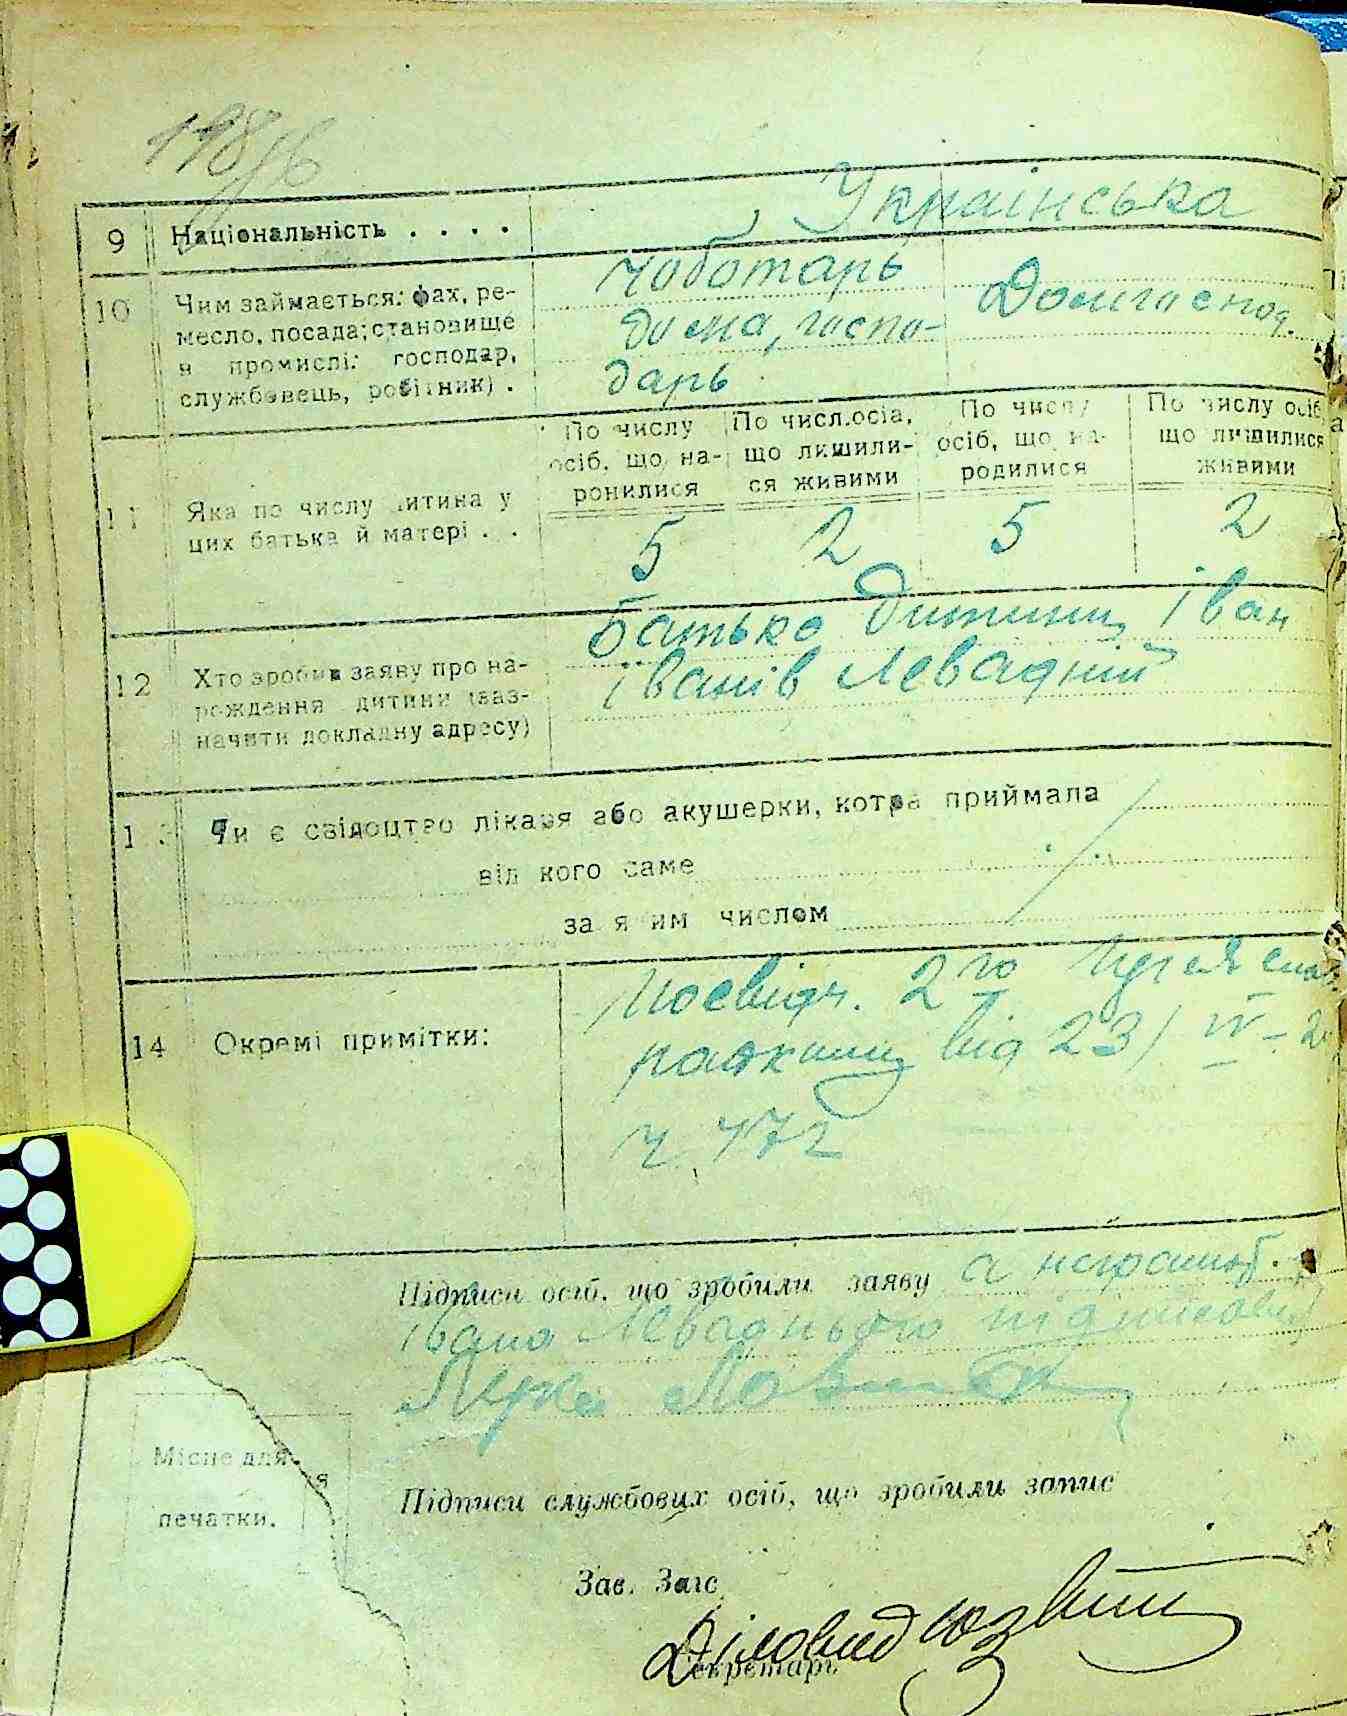 198/6
9 Національність . . . . Українська
10 Чим займається: фах, ре-
месло, посада; становище
в промислі: господар,
службовець, робітник) .
чоботарь
дома, госпо-
дарь
Домгоспод.
11 Яка по числу дитина у
цих батька й матері . .
По числу
осіб, що на-
ронилися
По числ.осіа,
що лишили-
ся живими
По числу
осіб, що на-
родилися
По числу осіб,
що лишилися
живими
5 2 5 2
12 Хто зробив заяву про на-
рождення дитини (заз-
начити докладну адресу)
Батько дитини Іван
Іванів Левадній
13 Чи є свідоцтво лікаря або акушерки, котра приймала
від кого саме
за я им числом
14 Окремі примітки:
Посвідч. 2го
від 23/IV-2
ч. 172
Підписи осіб, що зробили заяву а неграмот.
Івана Левадньего підписався
Підписи службових осіб, що зробили запис
Місце для
печатки.
Зав. Загс
Діловод
Секретарь